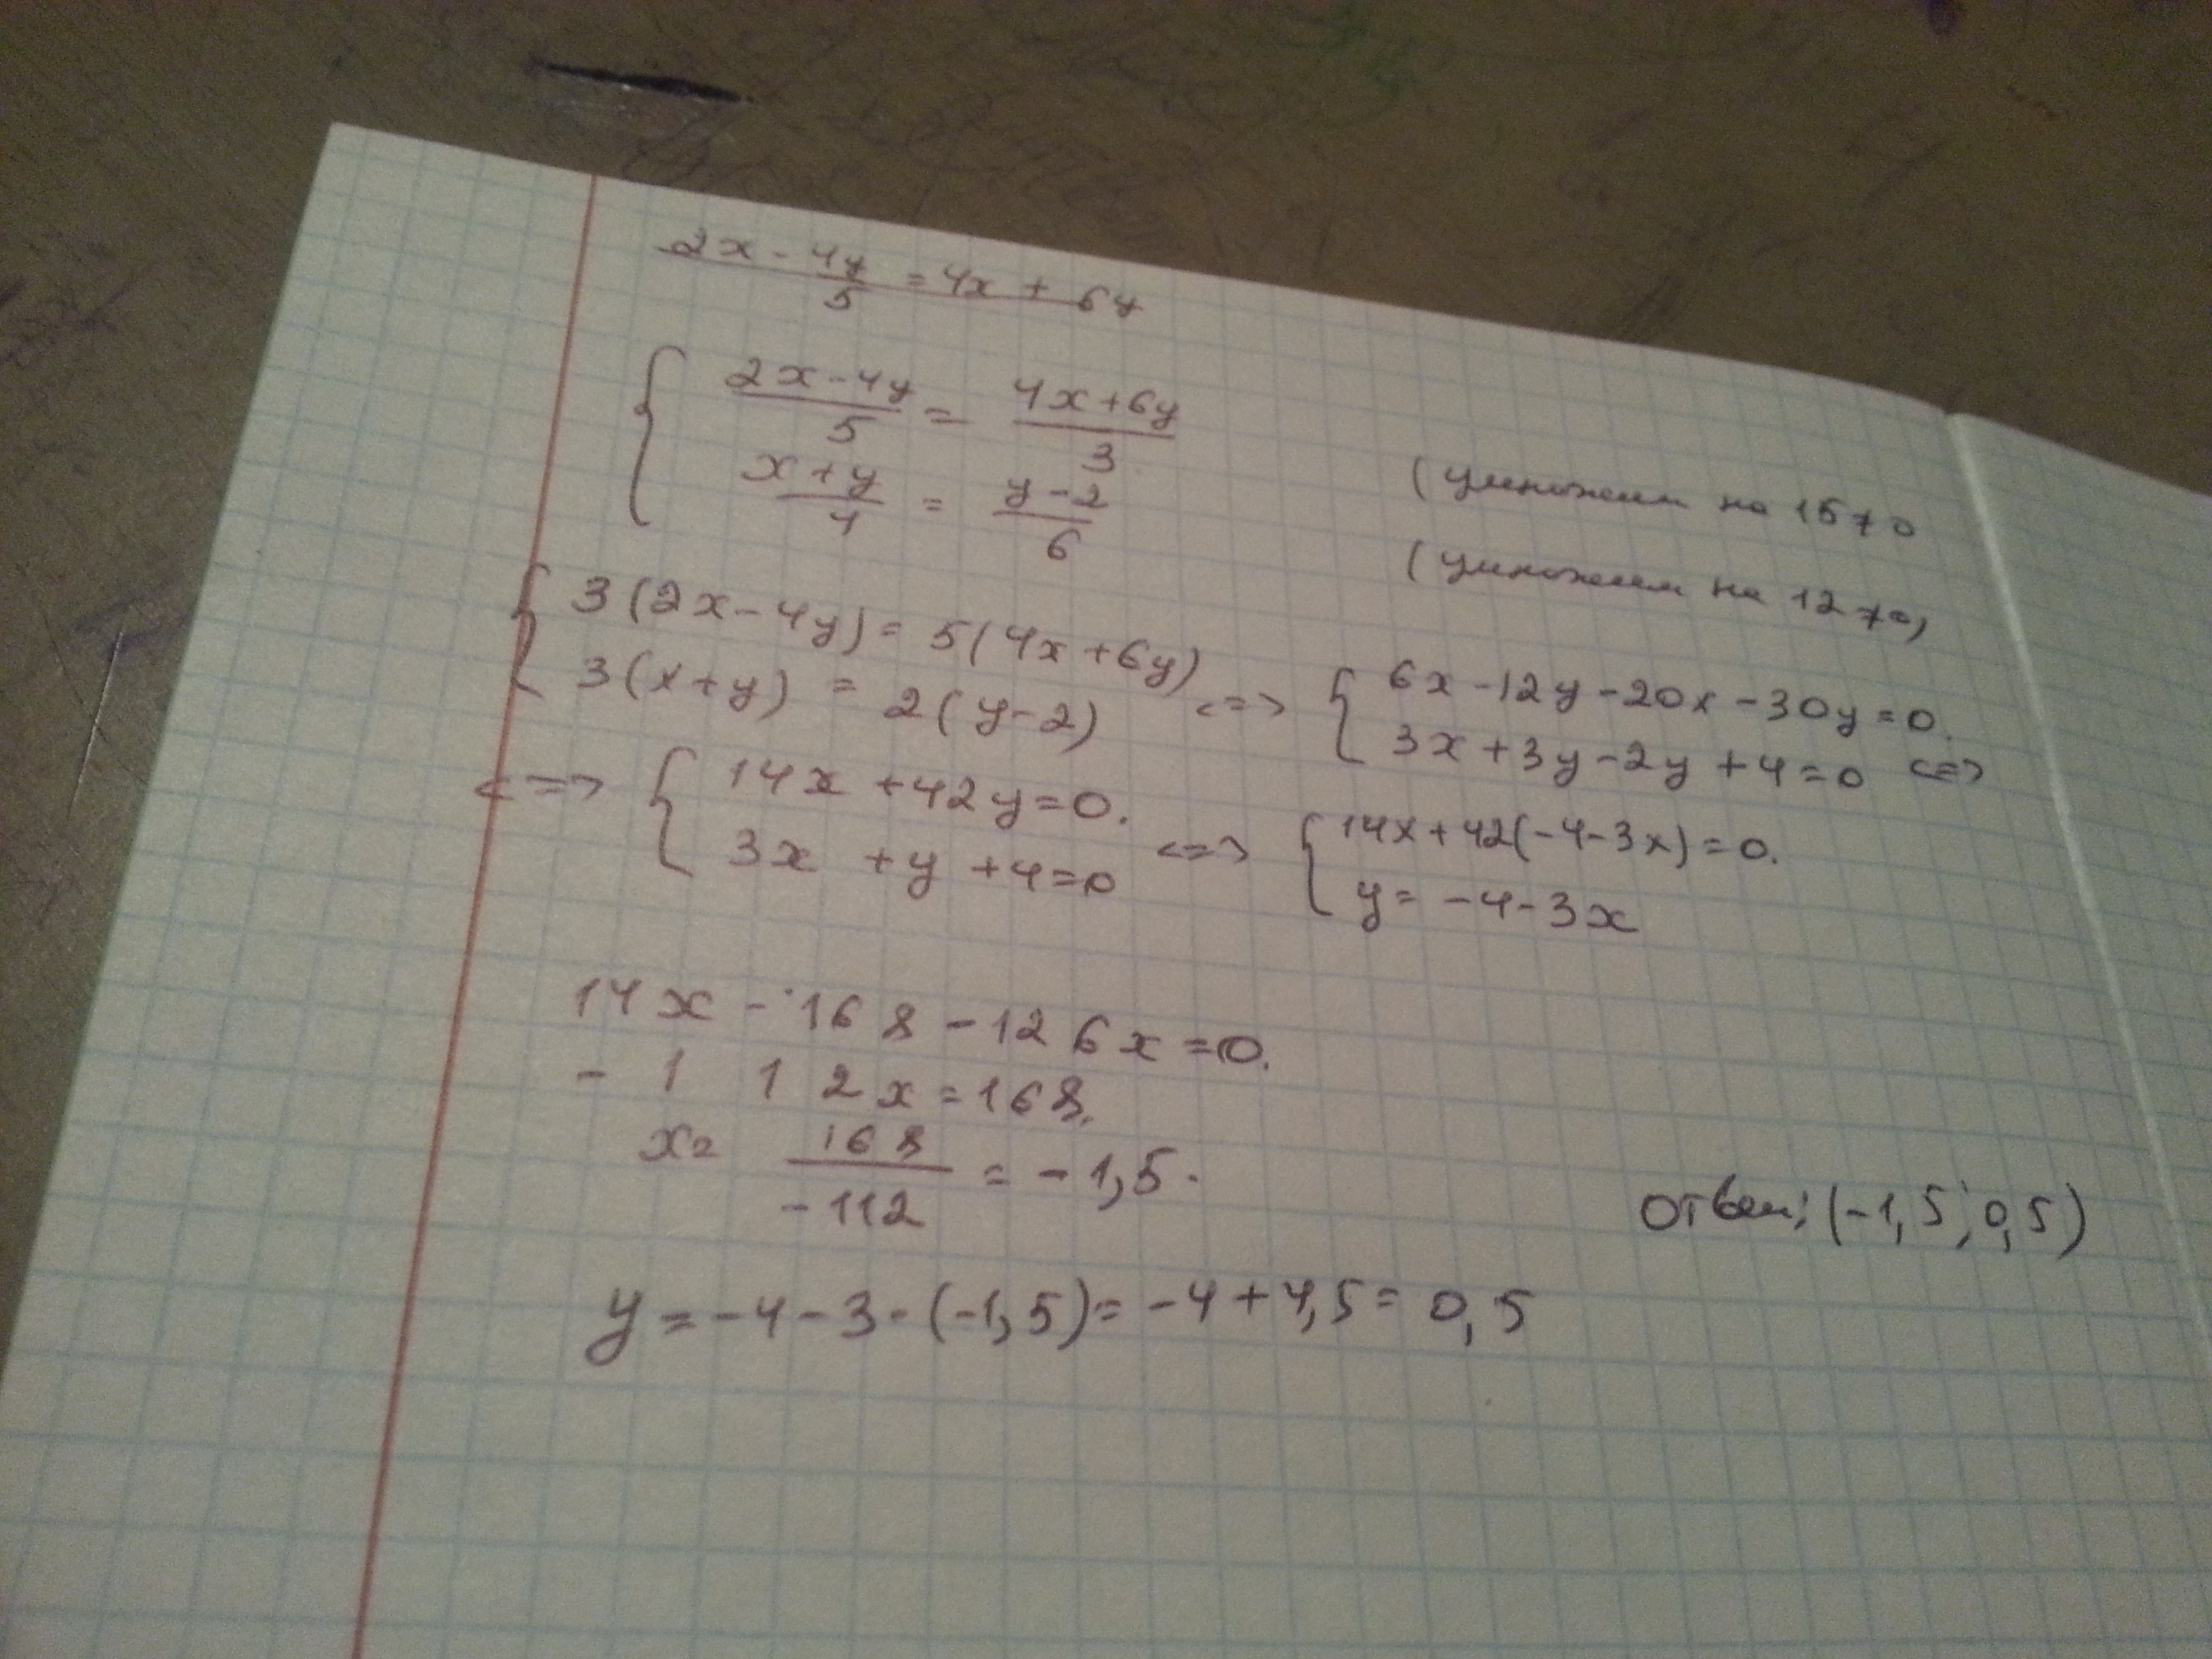 2x - 4y/5 = 4x + 6y
{ (2x-4y)/5 = (4x+6y)/3 (умножим на 15≠0
(x+y)/4 = (y-2)/6 (умножим на 12≠0)
{ 3(2x-4y) = 5(4x+6y)
3(x+y) = 2(y-2) <=> { 6x-12y-20x-30y=0.
3x+3y-2y+4=0 <=>
<=> { 14x+42y=0.
3x+y+4=0 <=> { 14x+42(-4-3x)=0.
y=-4-3x
14x-168-126x=0.
-112x=168.
x= 168/-112 = -1,5.
Ответ: (-1,5; 0,5)
y=-4-3·(-1,5)=-4+4,5=0,5